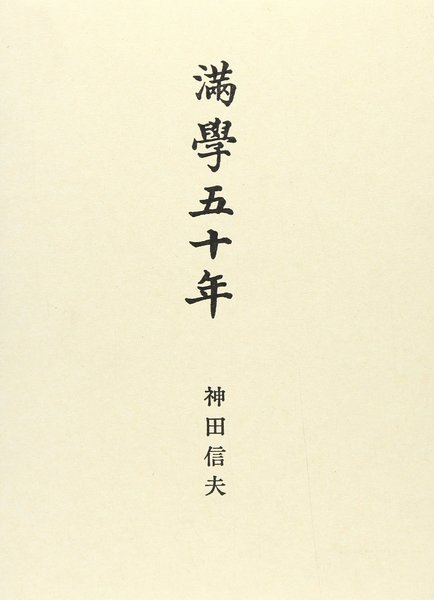 満學五十年
神田信夫